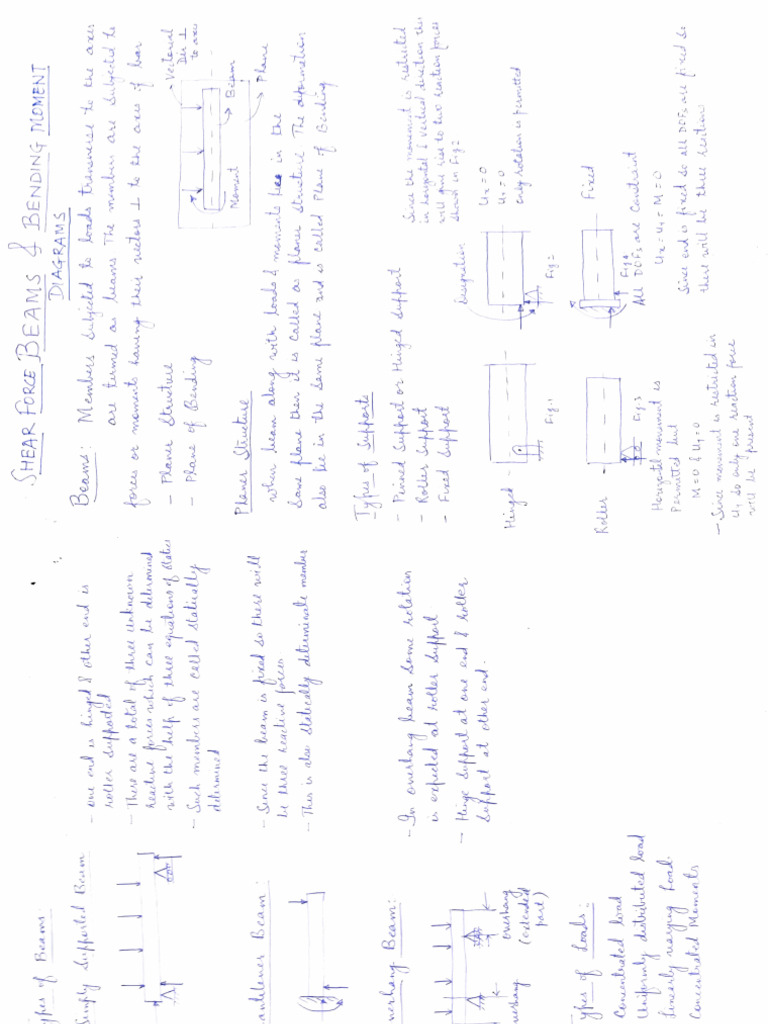 SHEAR FORCE BEAMS & BENDING MOMENT
DIAGRAMS
Beams: Members subjected to loads transverse to the axes
are termed as beams The members are subjected to
forces or moments having their vectors ⊥ to the axes of bar
- Planer Structure
- Plane of Bending
Vectorial
Dir ⊥
to axes
Beam
Moment
Plane
Planer Structure
when beam along with loads & moments lies in the
same plane then it is called as planer structure The deformation
also lie in the same plane and is called Plane of Bending
Types of Supports
- Pinned Support or Hinged Support
- Roller Support
- Fixed Support
Since the movement is restricted
in horizontal & vertical direction this
will give rise to two reaction forces
shown in Fig 2
Hinged
Fig. 1
designation
Fig 2
Ux = 0
Uy = 0
only rotation is permitted
Roller
Fig. 3
Horizontal movement is
Permitted but
M = 0 & Uy = 0
- Since movement is restricted in
Uy so only one reaction force
will be present
Fixed
Fig 4
All DOFs are constraint
Ux = Uy = M = 0
Since end is fixed so all DOFs are fixed so
there will be three reactions
ypes of Beams:
Simply Supported Beam
- one end is hinged & other end is
roller supported
- There are a total of three unknown
reactive forces which can be determined
with the help of three equations of statics
- Such members are called statically
determined
antilever Beam:
- Since the beam is fixed so there will
be three reactive forces.
- This is also statically determinate member
verhang Beam:
verhang
overhang
(extended
part)
- In overhang beam some rotation
is expected at roller support
- Hinge support at one end & roller
support at other end.
ypes of Loads:
Concentrated load
Uniformly distributed load
Linearly varying load
Concentrated Moments